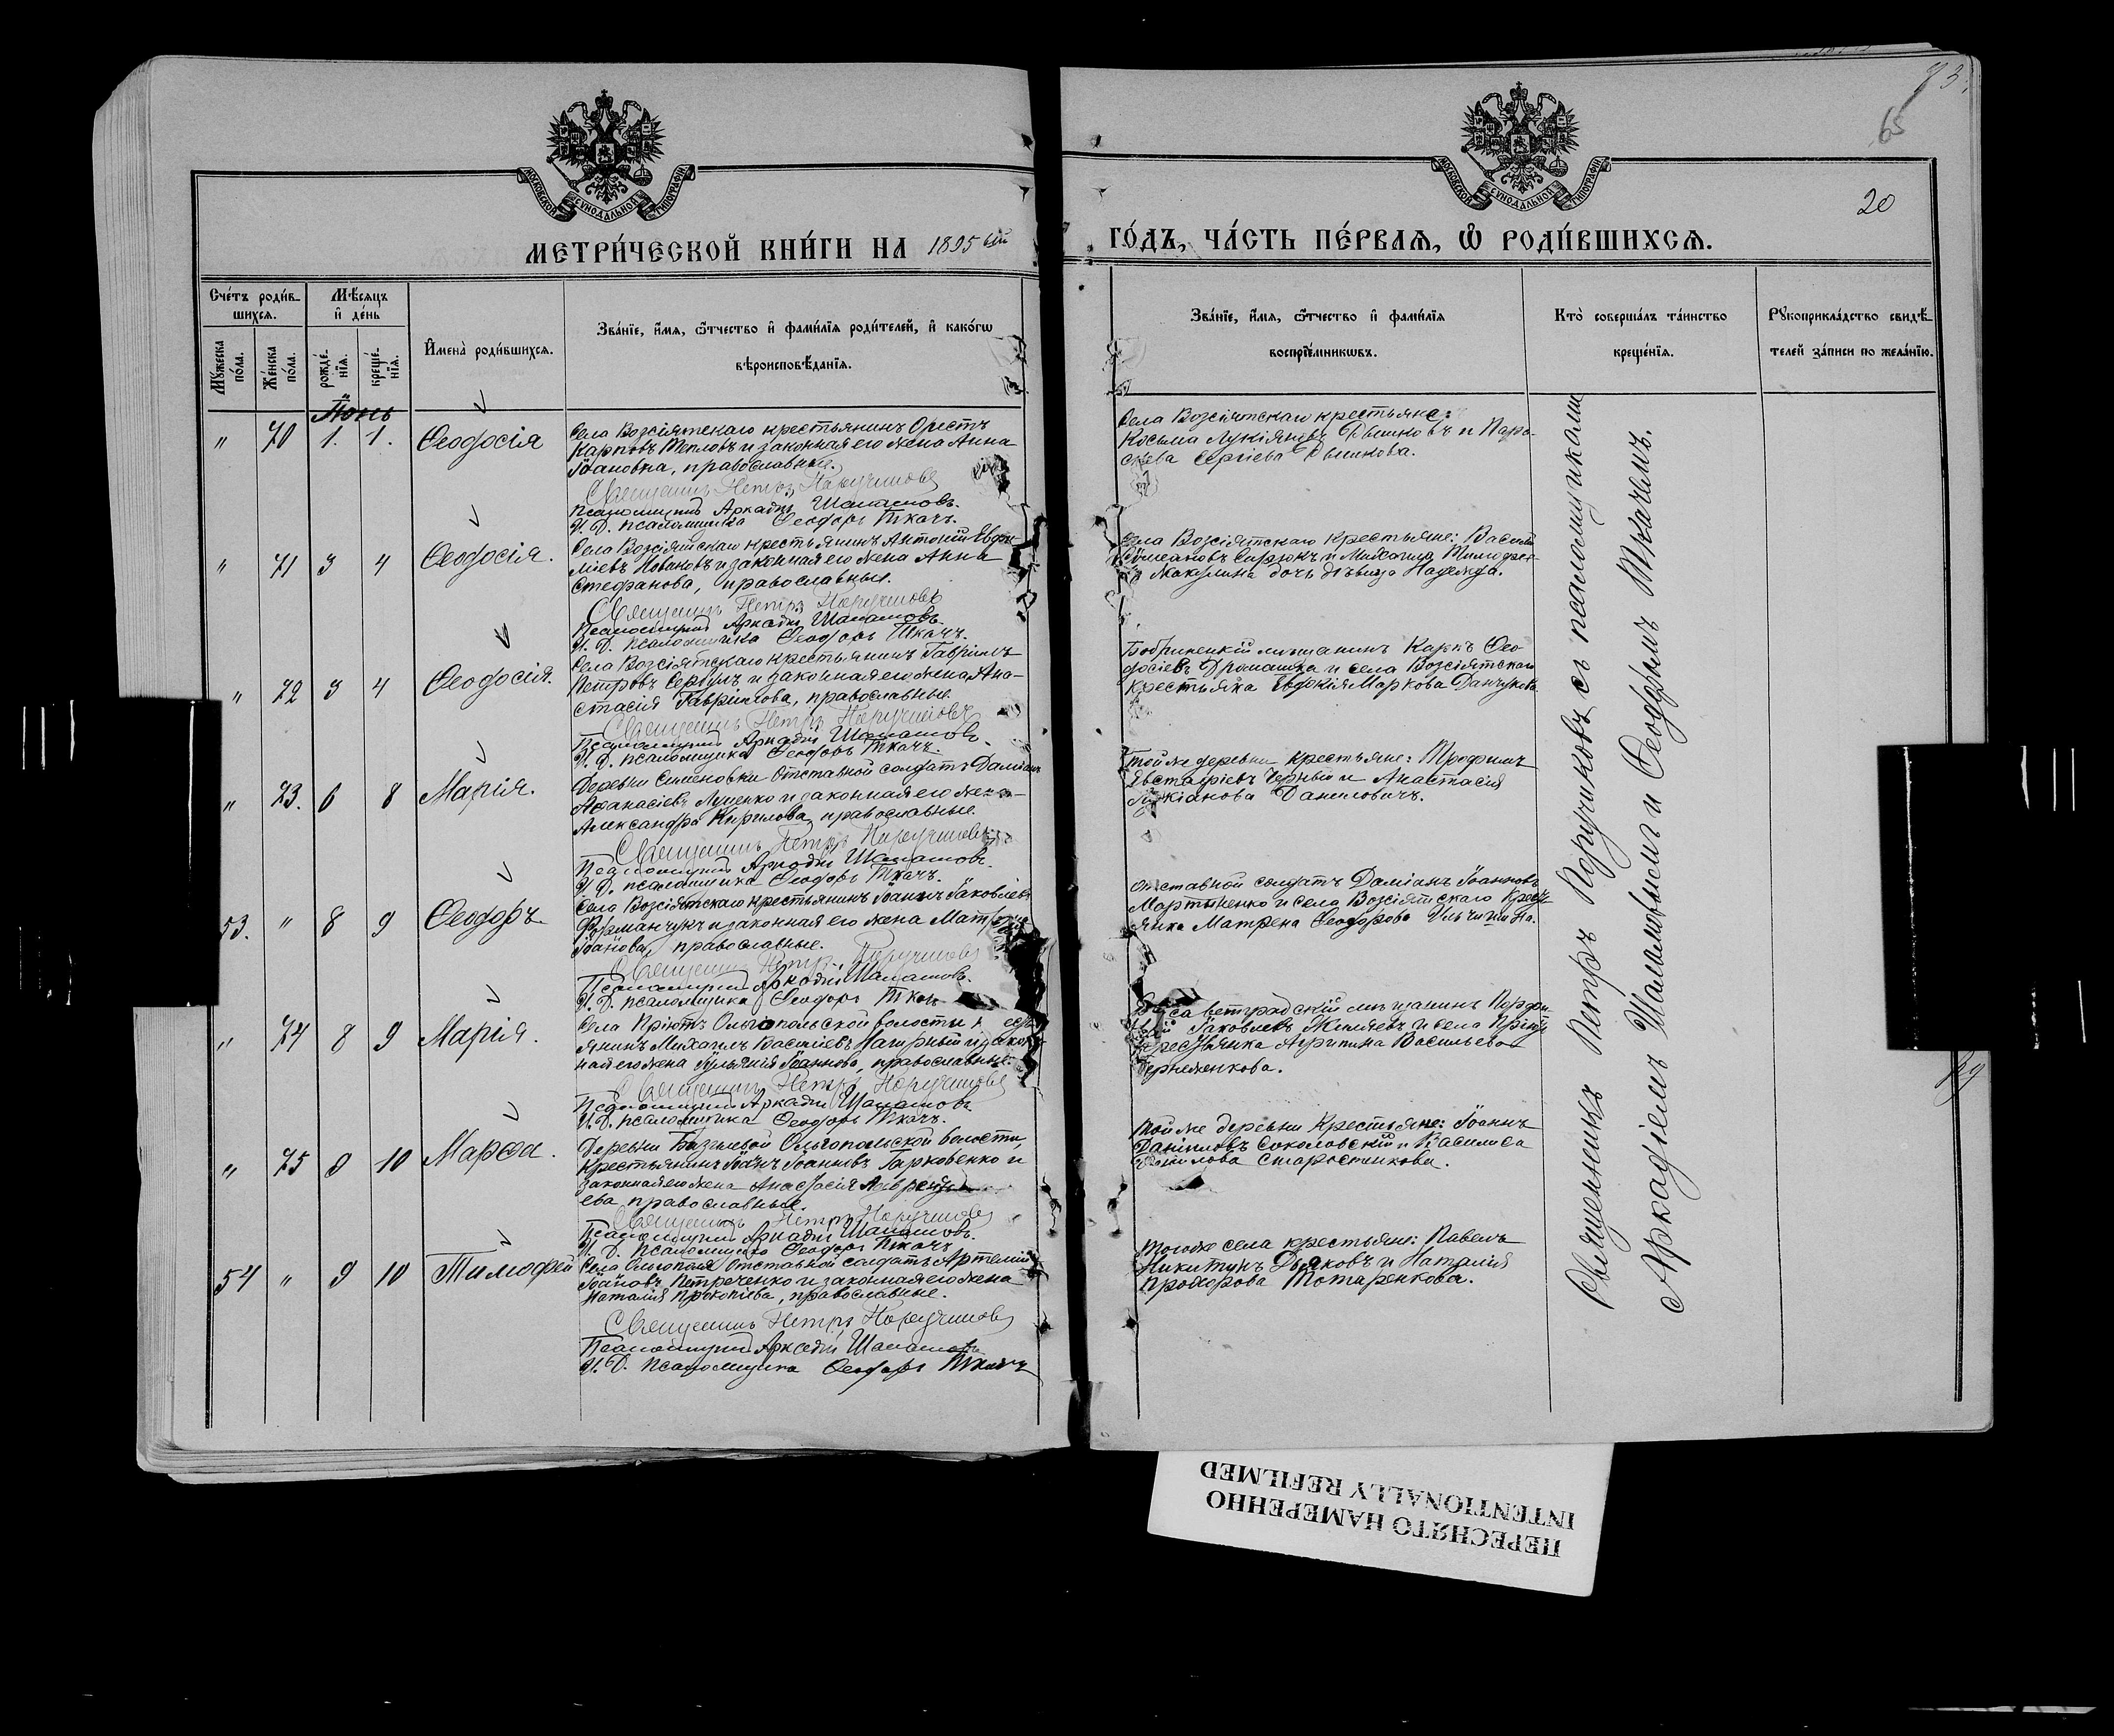 73.
65
20
МОСКОВСКОЙ СѴНОДАЛЬНОЙ ТИПОГРАФІИ
МОСКОВСКОЙ СѴНОДАЛЬНОЙ ТИПОГРАФІИ
МЕТРИ́ЧЕСКОЙ КНИ́ГИ НА 1895 ый
ГО́ДЪ, ЧА́СТЬ ПЕ́РВАѦ, Ѡ҆ РОДИ́ВШИХСѦ.
Сче́тъ роди́в-
шихсѧ.
Мꙋ́жеска по́ла.
Же́нска по́ла.
Мѣ́сѧцъ
и҆ де́нь
рожде́-
нїѧ.
креще́-
нїѧ.
И҆мена̀ роди́вшихсѧ.
Зва́нїе, и҆́мѧ, ѻ҆́тчество и҆ фами́лїѧ роди́телей, и҆ како́гѡ
вѣроисповѣ́данїѧ.
Зва́нїе, и҆́мѧ, ѻ҆́тчество и҆ фами́лїѧ
воспрїе́мникѡвъ.
Кто̀ соверша́лъ та́инство
креще́нїѧ.
Рꙋкоприкла́дство свидѣ́-
телей за́писи по жела́нїю.
Іюнь
" 70 1. 1. Ѳеодосія
Села Возсіятскаго крестьянинъ Орестъ
Карповъ Тепловъ и законная его жена Анна
Іоановна, православные.
Священникъ Петръ Поручиковъ
Псаломщикъ Аркадій Шаламовъ.
И. Д. псаломщика Ѳеодоръ Ткачъ.
Села Возсіятскаго крестьяне:
Косьма Лукіяновъ Дышковъ и Пара-
скева Сергіева Дышкова.
" 71 3 4 Ѳеодосія.
Села Возсіятскаго крестьянинъ Антоній Евфи-
міевъ Ивановъ и законная его жена Анна
Стефанова, православные.
Священникъ Петръ Поручиковъ
Псаломщикъ Аркадій Шаламовъ.
И. Д. псаломщика Ѳеодоръ Ткачъ.
Села Возсіятскаго крестьяне: Василій
и Михаила Тимофее-
Макулина дочь дѣвица Надежда.
" 72 3 4 Ѳеодосія.
Села Возсіятскаго крестьянинъ Гавріилъ
Петровъ и законная его жена Ана-
стасія Гавріилова, православные.
Священникъ Петръ Поручиковъ
Псаломщикъ Аркадій Шаламовъ.
И. Д. псаломщика Ѳеодоръ Ткачъ.
Бобринецкій мѣщанинъ Карпъ Ѳео-
досіевъ Дромашка и села Возсіятскаго
крестьянка Евдокія Маркова Данчукова.
" 73. 6 8 Марія.
Деревни Семеновки отставной солдатъ Даміанъ
Афанасіевъ Луценко и законная его жена
Александра Кирилова, православные.
Священникъ Петръ Поручиковъ
Псаломщикъ Аркадій Шаламовъ.
И. Д. псаломщика Ѳеодоръ Ткачъ.
Той же деревни крестьяне: Трофимъ
Евстафіевъ Черный и Анастасія
Даниловичъ.
53. " 8 9 Ѳеодоръ
Села Возсіятскаго крестьянинъ Іоаннъ Іаковлевъ
Фурманчукъ и законная его жена Матрона
Іоанова, православные.
Священникъ Петръ Поручиковъ
Псаломщикъ Аркадій Шаламовъ.
И. Д. псаломщика Ѳеодоръ Ткач
отставной солдатъ Даміанъ Іоанновъ
Мартыненко и села Возсіятскаго крест-
янка Матрена Ѳеодорова
" 74 8 9 Марія.
Села Пріютъ Ольгопольской волости
янинъ Михаилъ Василіевъ
ная его жена Іуліянія Іоаннова, православные.
Священникъ Петръ Поручиковъ
Псаломщикъ Аркадій Шаламовъ
И. Д. псаломщика Ѳеодоръ Ткачъ.
мѣщанинъ Порфи-
Іаковлевъ и села Пріютъ
крестьянка Агрипина Васильева
" 75 9 10 Марѳа.
Деревни Ольгопольской волости,
крестьянинъ Іоанъ Іоанновъ Гарковенко и
законная его жена Анастасія Лаврентъ-
ева, православные.
Священникъ Петръ Поручиковъ
Псаломщикъ Аркадій Шаламовъ.
И. Д. псаломщика Ѳеодоръ Ткачъ
Той же деревни крестьяне: Іоаннъ
Даніиловъ Соколовскій и Василиса
Старостенкова.
54 " 9 10 Тимофей
Села Ольгополя отставной солдатъ Артемій
Іоановъ Петреченко и законная его жена
Наталія Прокопіева, православные.
Священникъ Петръ Поручиковъ
Псаломщикъ Аркадій Шаламовъ
И. Д. псаломщика Ѳеодоръ Ткачъ
Того же села крестьяне: Павелъ
Никитинъ Дьяковъ и Наталія
Прохорова Тотаренкова.
Священникъ Петръ Поручиковъ съ псаломщиками
Аркадіемъ Шаламовымъ и Ѳеодоромъ Ткачемъ.
ПЕРЕСНЯТО НАМЕРЕННО
INTENTIONALLY REFILMED